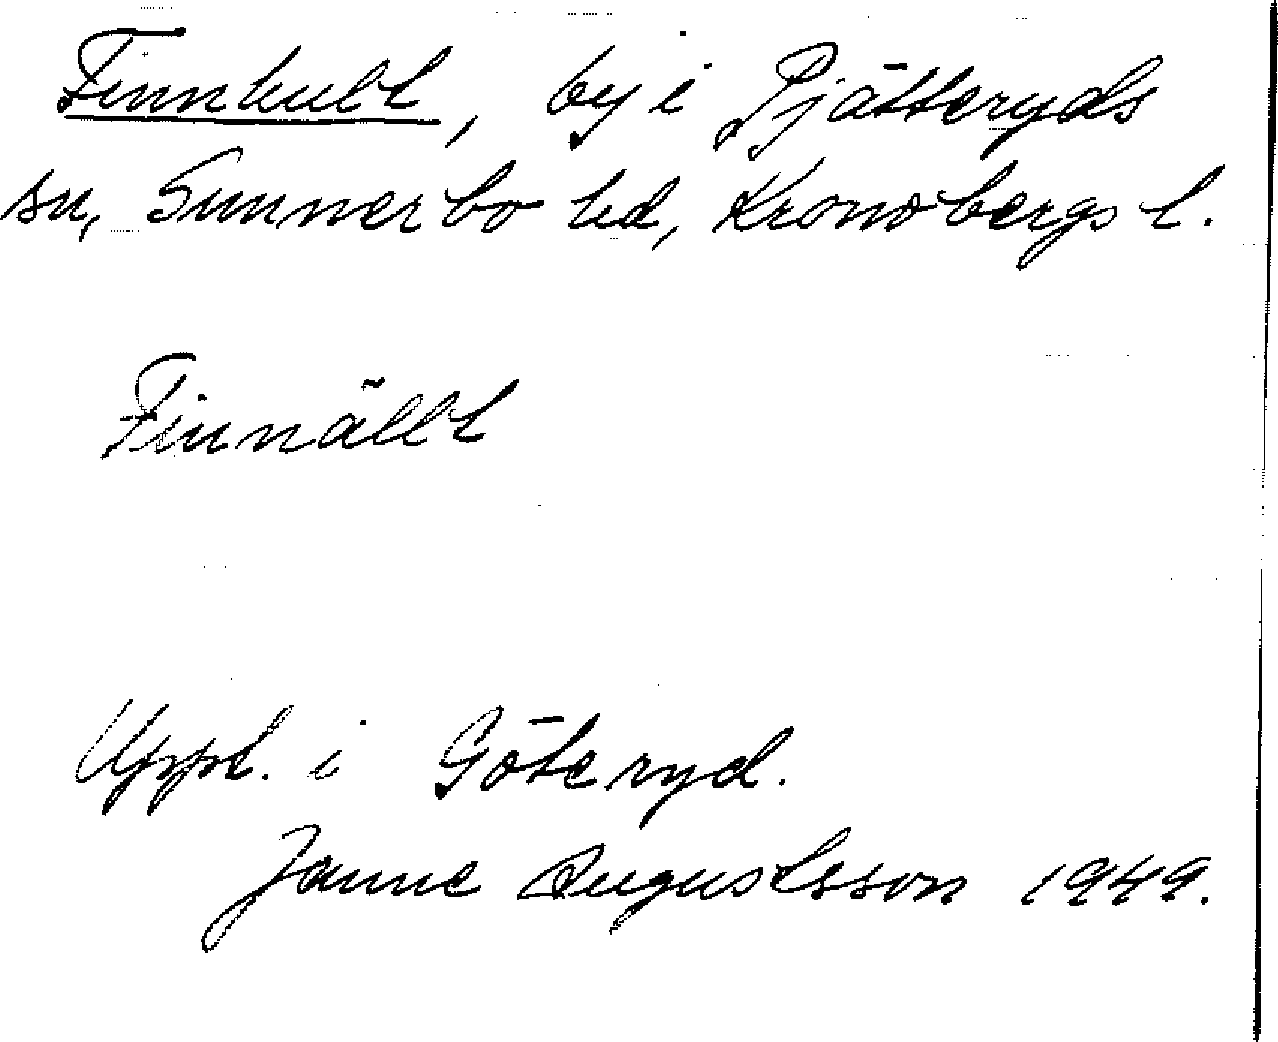 Finnhult, by i Pjätteryds
sn, Sunnerbo hd, Kronobergs l.
Finnällt
Uppt. i Göteryd.
Janne Augustsson 1949.